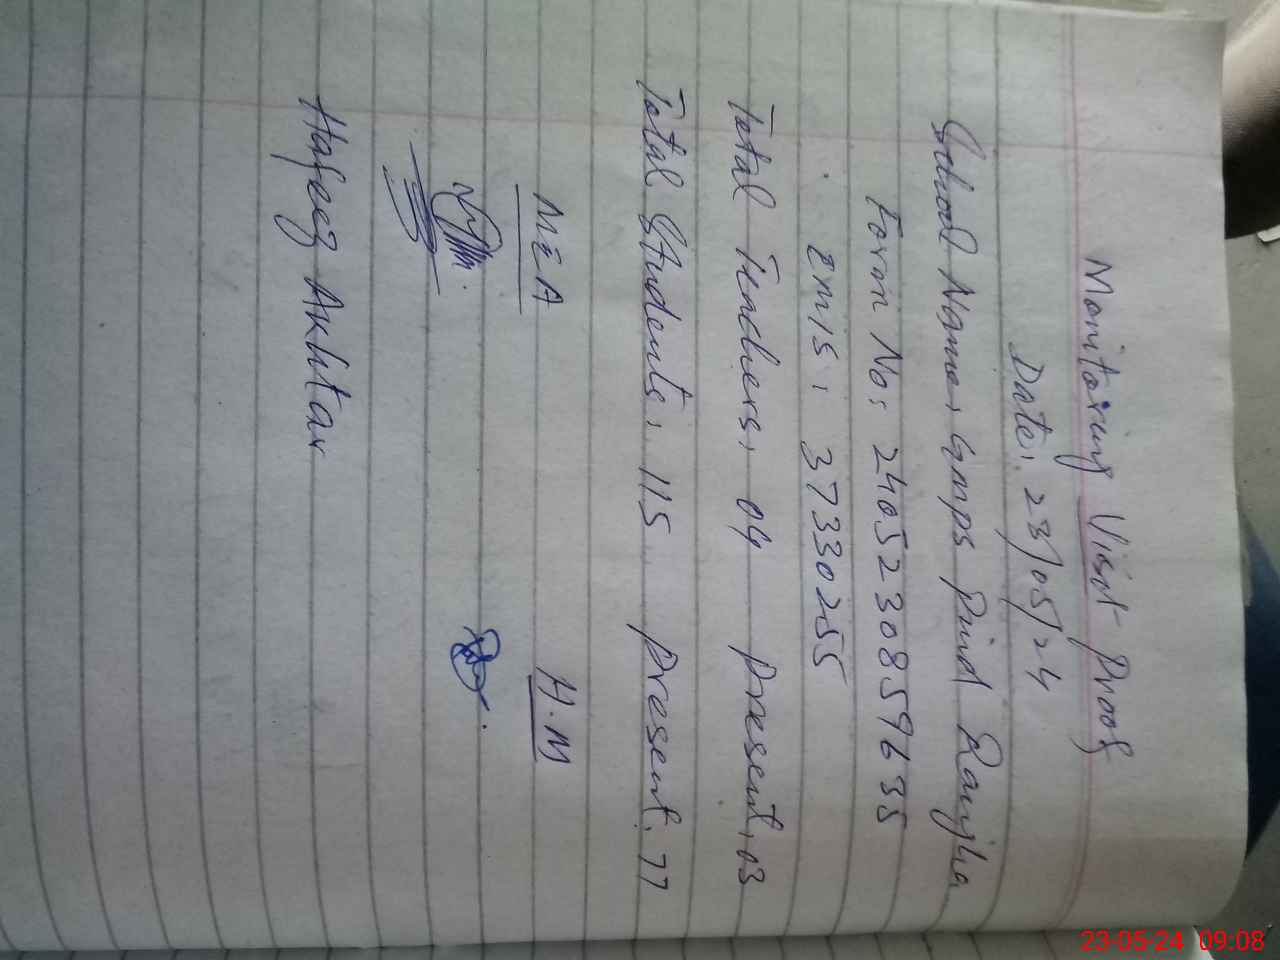 Monitoring Visit Proof
Date: 23/05/24
School Name: GMPS Pind Ranjha
Form No: 2405230859635
EMIS: 37330255
Total Teachers: 04 Present: 03
Total Students: 115 Present: 77
MEA H.M
Hafeez Akhtar
23-05-24 09:08